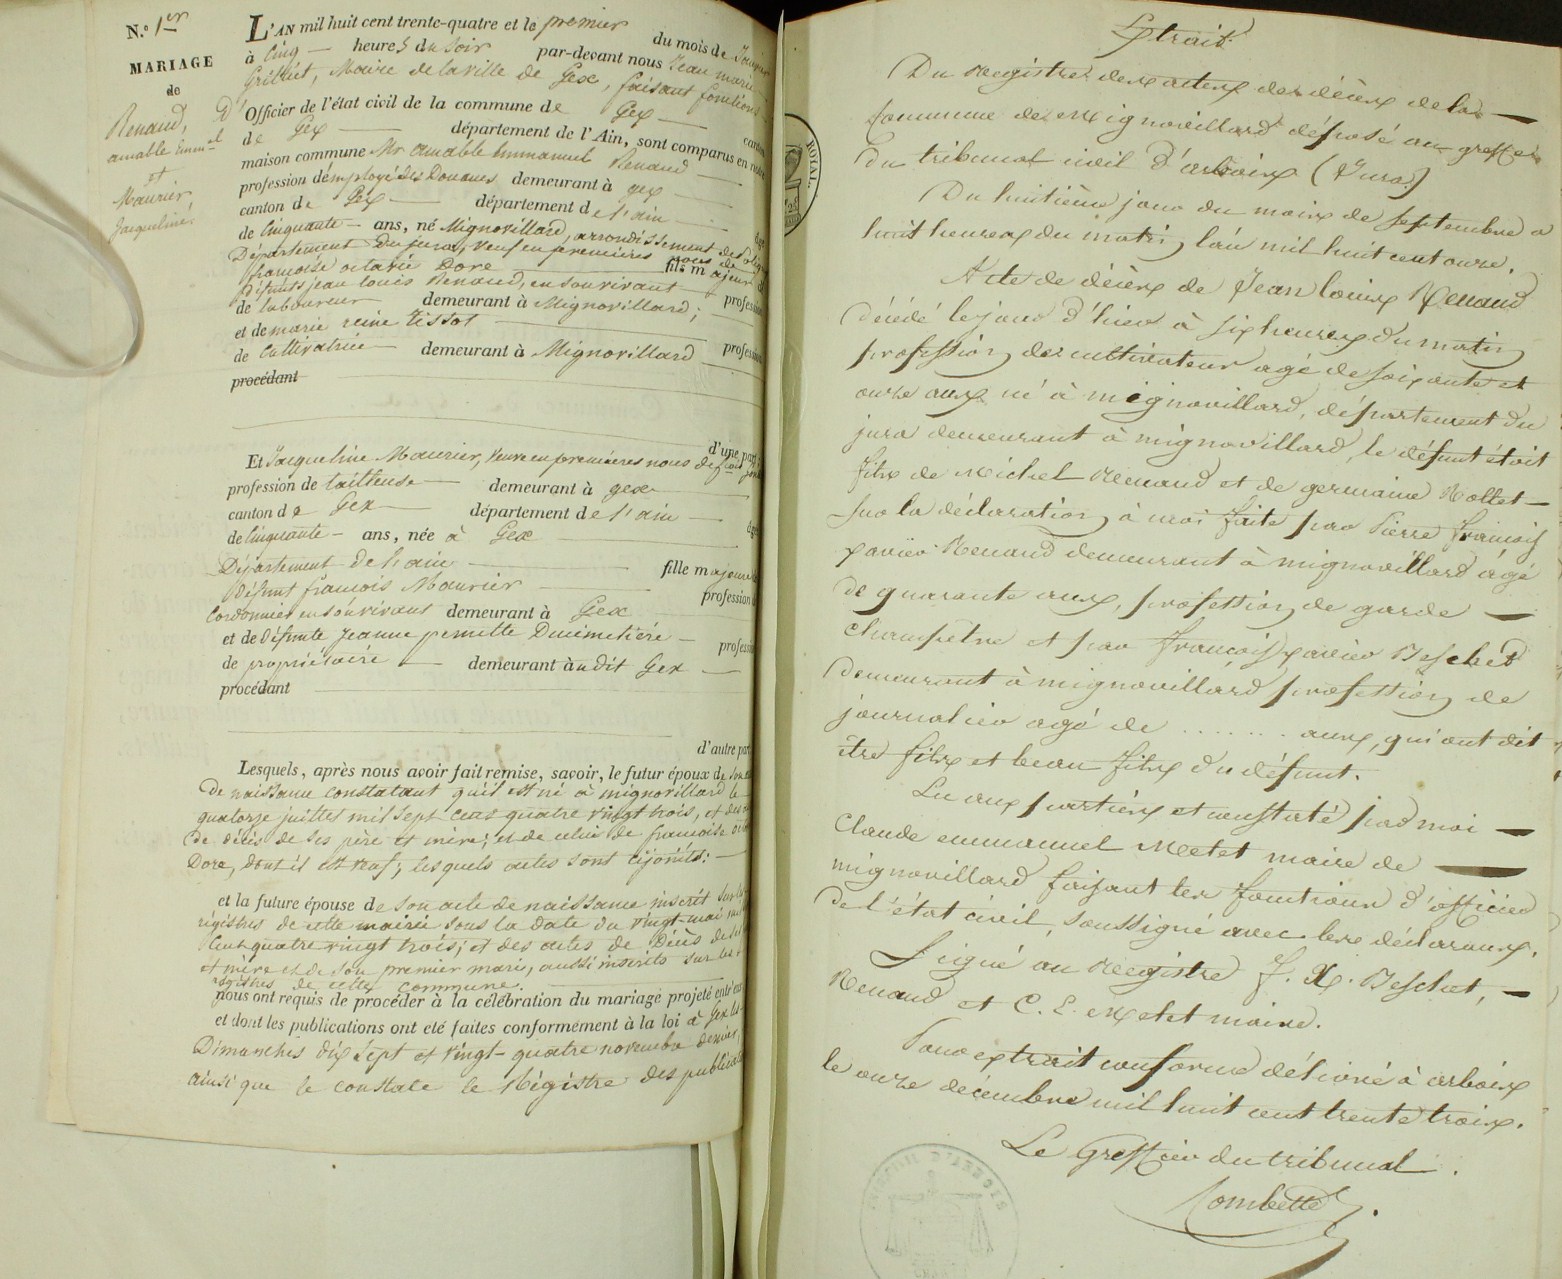 N.° 1er
MARIAGE
de
Renaud,
amable Emm.el
et
Maurier,
Jacqueline.
L'AN mil huit cent trente-quatre et le premier du mois de Janvier
à Cinq heures du soir par-devant nous Jean marie
Maire de la ville de Gex, faisant fonctions
d'Officier de l'état civil de la commune de Gex canton
de Gex département de l'Ain, sont comparus en notre
maison commune Mr amable Emmanuel Renaud
profession d'employé des Douanes demeurant à gex
canton de Gex département de l'ain âgé
de Cinquante ans, né Mignovillard, arrondissement de
Département du jura, veuf en premières noces de
françoise octavie Dore fils majeur de
Défunts jean louis Renaud, en son vivant profession
de laboureur demeurant à Mignovillard;
et de marie reine Tissot profession
de Cultivatrice demeurant à Mignovillard
procédant
d'une part;
Et Jacqueline Maurier, veuve en premières noces de
profession de laitteuse demeurant à gex
canton de Gex département de l'ain âgée
de Cinquante ans, née à Gex
Département de l'ain fille majeure de
Défunt françois Maurier profession de
Cordonnier en son vivant demeurant à Gex
et de Défunte Jeanne pernette Ducimetière profession
de propriétaire demeurant àudit Gex
procédant
d'autre part
Lesquels, après nous avoir fait remise, savoir, le futur époux de son acte
De naissance constatant qu'il est né à mignovillard le
quatorze juillet mil sept cens quatre vingt trois, et des actes
de décès de ses père et mère; et de celui de françoise octavie
Dore, dont il est veuf; lesquels actes sont cijoints:
et la future épouse de son acte de naissance inscrit sur les
régistres de cette mairie sous la date du vingt-mai mil sept
Cent quatre vingt trois; et des actes de Décès de ses père
et mère et de son premier mari, aussi inscrits sur les
régistres de cette commune.
nous ont requis de procéder à la célébration du mariage projeté entr'eux
et dont les publications ont été faites conformément à la loi à Gex les
Dimanches dix sept et vingt-quatre novembre dernier,
ainsi que le constate le Régistre des publications
Extrait.
Du Registre des actes des décès de la
Commune de Mignovillard déposé au greffe
du tribunal civil d'arbois (Jura)
Du huitième jour du mois de septembre a
huit heures du matin, l'an mil huit cent onze.
Acte de décès de Jean louis Renaud
décédé le jour d'hier à six heures du matin
profession de cultivateur agé de soixante et
onze ans né à mignovillard, département du
jura demeurant à mignovillard, le défunt étoit
fils de Michel Renaud et de germaine Rollet
sur la déclaration à moi faite par Pierre françois
xavier Renaud demeurant à mignovillard âgé
de quarante ans, profession de garde
champêtre et par françois xavier Beschet
demeurant à mignovillard profession de
journalier agé de ....... ans, qui ont dit
être fils et beau fils du défunt.
Lu aux parties et constaté par moi
Claude emmanuel Metet maire de
mignovillard faisant les fonctions d'officier
de l'état civil, soussigné avec les déclarans.
Signé au Registre f. X. Beschet,
Renaud et C. E. Metet maire.
Pour extrait conforme délivré à arbois
le onze décembre mil huit cent trente trois.
Le Greffier du tribunal.
Combette
ROYAL